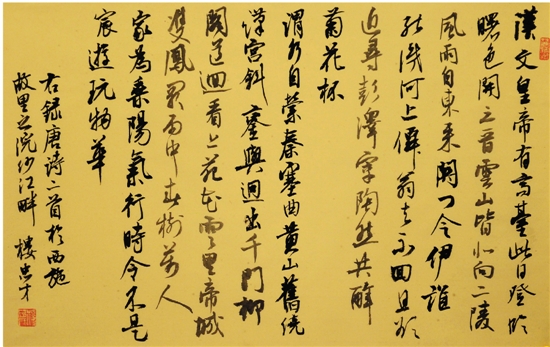 漢文皇帝有高臺此日登臨
曙色開三晉雲山皆北向二陵
風雨自東來關門令伊誰
能識河上僊翁去不回且欲
近尋彭澤宰陶然共醉
菊花杯
渭水自縈秦塞曲黃山舊繞
漢宮斜鑾輿迥出千門柳
閣道迴看上苑花雲里帝城
雙鳳闕雨中春樹萬人
家為乘陽氣行時令不是
宸遊玩物華
右錄唐詩二首於西施
故里之浣沙江畔 樓忠才